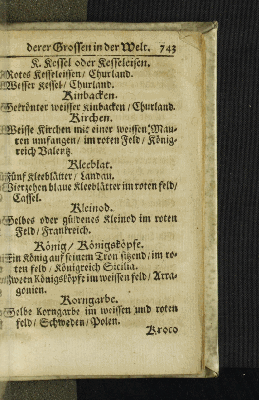 derer Grossen in der Welt. 743
K. Kessel oder Kesseleisen.
Rotes Kesseleissen / Churland.
Weisser Kessel / Churland.
Kinbacken.
Gekrönter weisser Kinbacken / Churland.
Kirchen.
Weisse Kirchen mit einer weissen Mau-
ren umfangen / im roten Feld / König-
reich Valentz.
Kleeblat.
Fünf Kleeblätter / Landau.
Vierzehen blaue Kleeblätter im roten feld /
Cassel.
Kleinod.
Gelbes oder güldenes Kleinod im roten
Feld / Frankreich.
König / Königsköpfe.
Ein König auf seinem Tron sitzend / im ro-
ten feld / Königreich Sicilia.
Zween Königsköpfe im weissen feld / Arra-
gonien.
Korngarbe.
Gelbe Korngarbe im weissen und roten
feld / Schweden / Polen.
Kroco